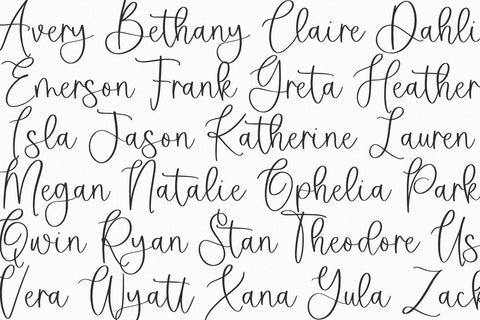 Avery Bethany Claire Dahli
Emerson Frank Greta Heather
Isla Jason Katherine Lauren
Megan Natalie Ophelia Park
Qwin Ryan Stan Theodore Us
Vera Wyatt Xana Yula Zack